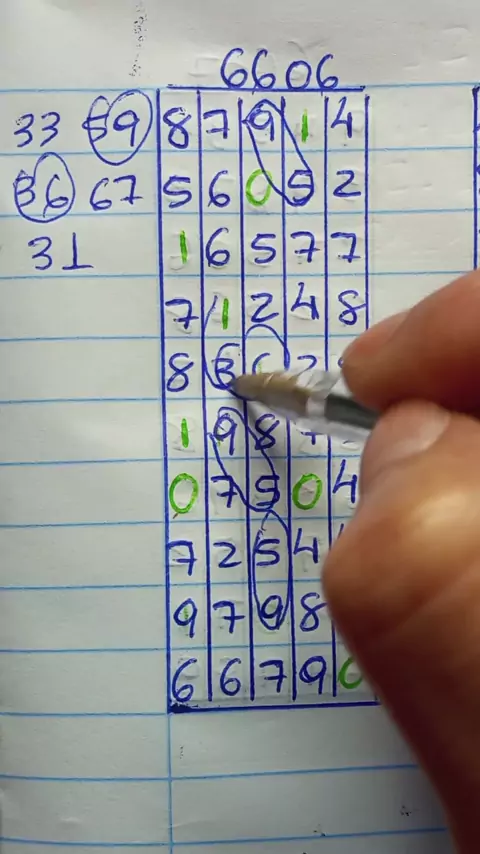 6606
33 59 8 7 9 1 4
36 67 5 6 0 5 2
31 1 6 5 7 7
7 1 2 4 8
8 3
1 9 8
0 7 5 0 4
7 2 5 4
9 7 9 8
6 6 7 9 0